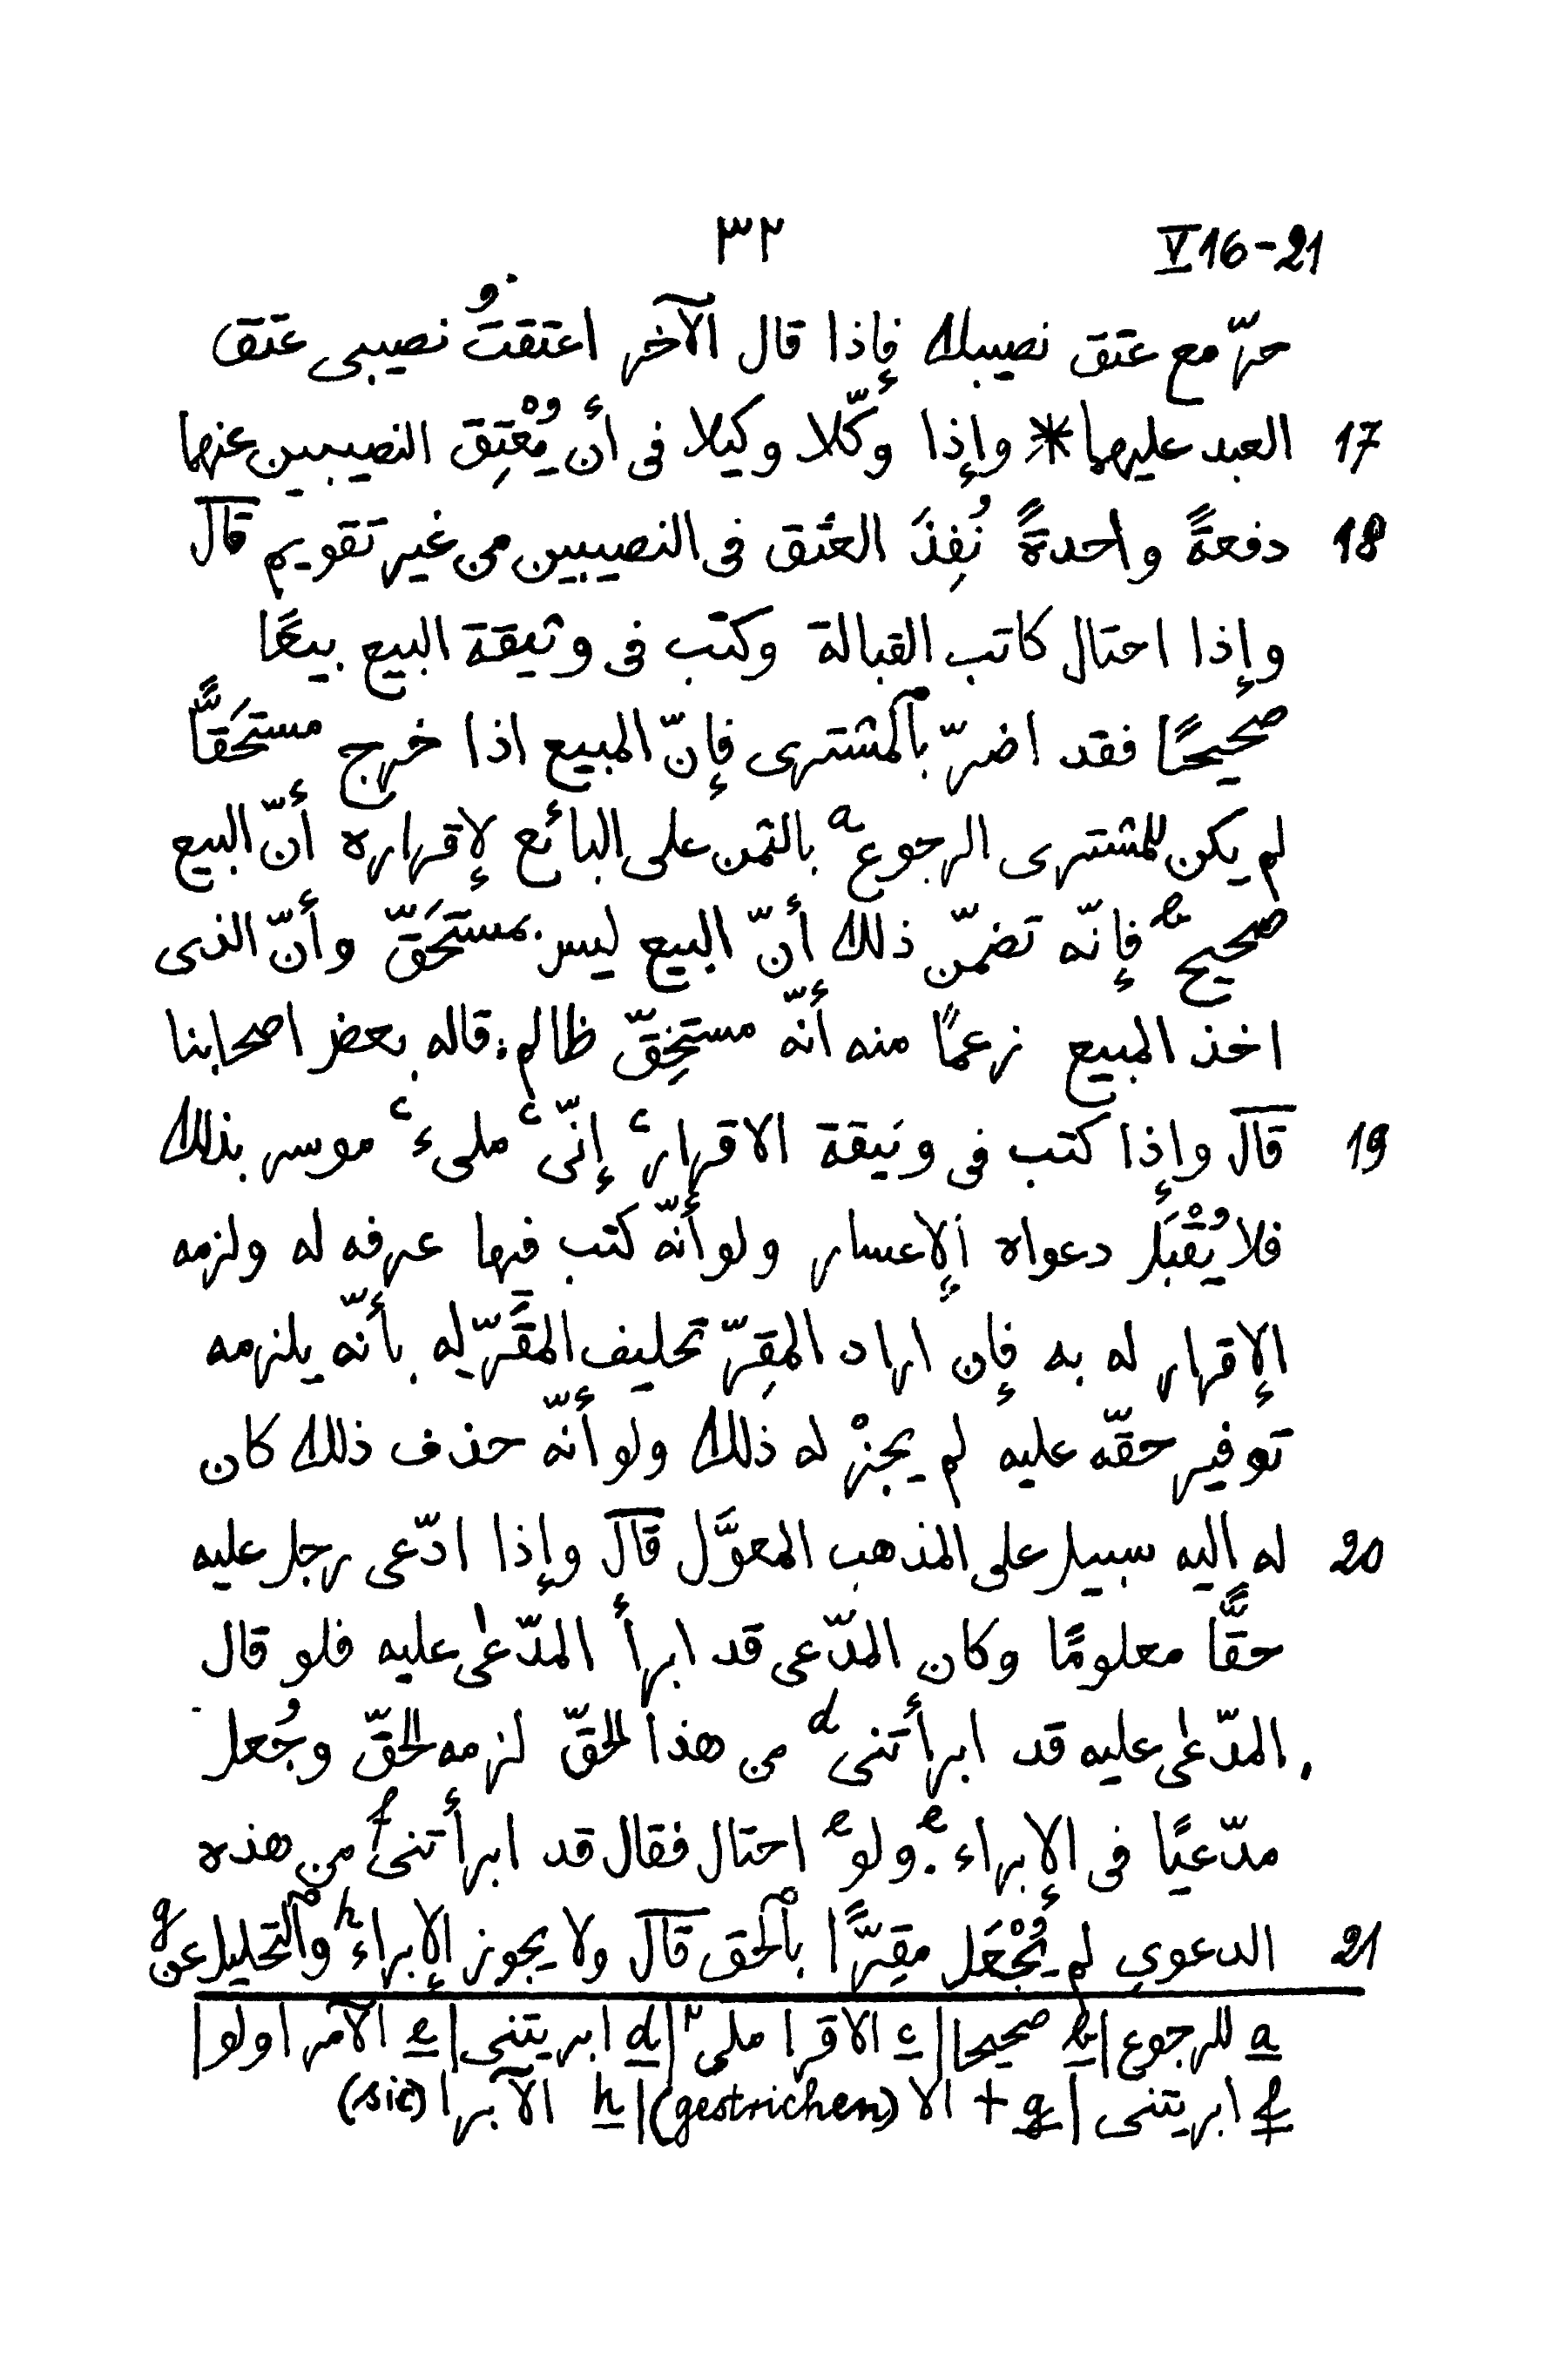 ٣٢ V 16-21
حرّ مع عتق نصيبك فإذا قال الآخر اعتقتُ نصيبى عتق
17 العبد عليهما * وإذا وكّلا وكيلا فى أن يُعْتِق النصيبين عنهما
18 دفعةً واحدةً نُفِذَ العتق فى النصيبين من غير تقويم قال
وإذا احتال كاتب القبالة وكتب فى وثيقة البيع بيعًا
صحيحًا فقد اضرّ بٱلمشترى فإنّ المبيع اذا خرج مستحَقًّا
لم يكن للمشترى الرجوع a بالثمن على البائع لإقراره أنّ البيع
صحيح b فإنّه تضمّن ذلك أنّ البيع ليس بمستحَقّ وأنّ الذى
اخذ المبيع زعمًا منه أنّه مستحِقّ ظالم: قاله بعض اصحابنا
19 قال وإذا كتب فى وثيقة الاقرار c إنّى c ملىء c موسر بذلك
فلا يُقْبَل دعواه الإعسار ولو أنّه كتب فيها عرفه له ولزمه
الإقرار له به فإن اراد المقِرّ تحليف المقَرّ له بأنّه يلزمه
توفير حقّه عليه لم يجزْ له ذلك ولو أنّه حذف ذلك كان
20 له اليه سبيل على المذهب المعوَّل قال وإذا ادّعى رجل عليه
حقًّا معلومًا وكان المدّعى قد ابرأ المدّعٰى عليه فلو قال
المدّعٰى عليه قد ابرأتنى d من هذا الحقّ لزمه الحقّ وجُعل
مدّعيًا فى الإبراء e. ولو e احتال فقال قد ابرأتنى f من هذه
21 الدعوى لم يُجْعَل مقِرًّا بٱلحق قال ولا يجوز الإبراء h وٱلتحليل عن g
a للرجوع | b صحيحا | c الاقرا ملى | d ابريتنى | e الآمر اولو |
f ابريتنى | g + الا (gestrichen) | h الآبرا (sic)